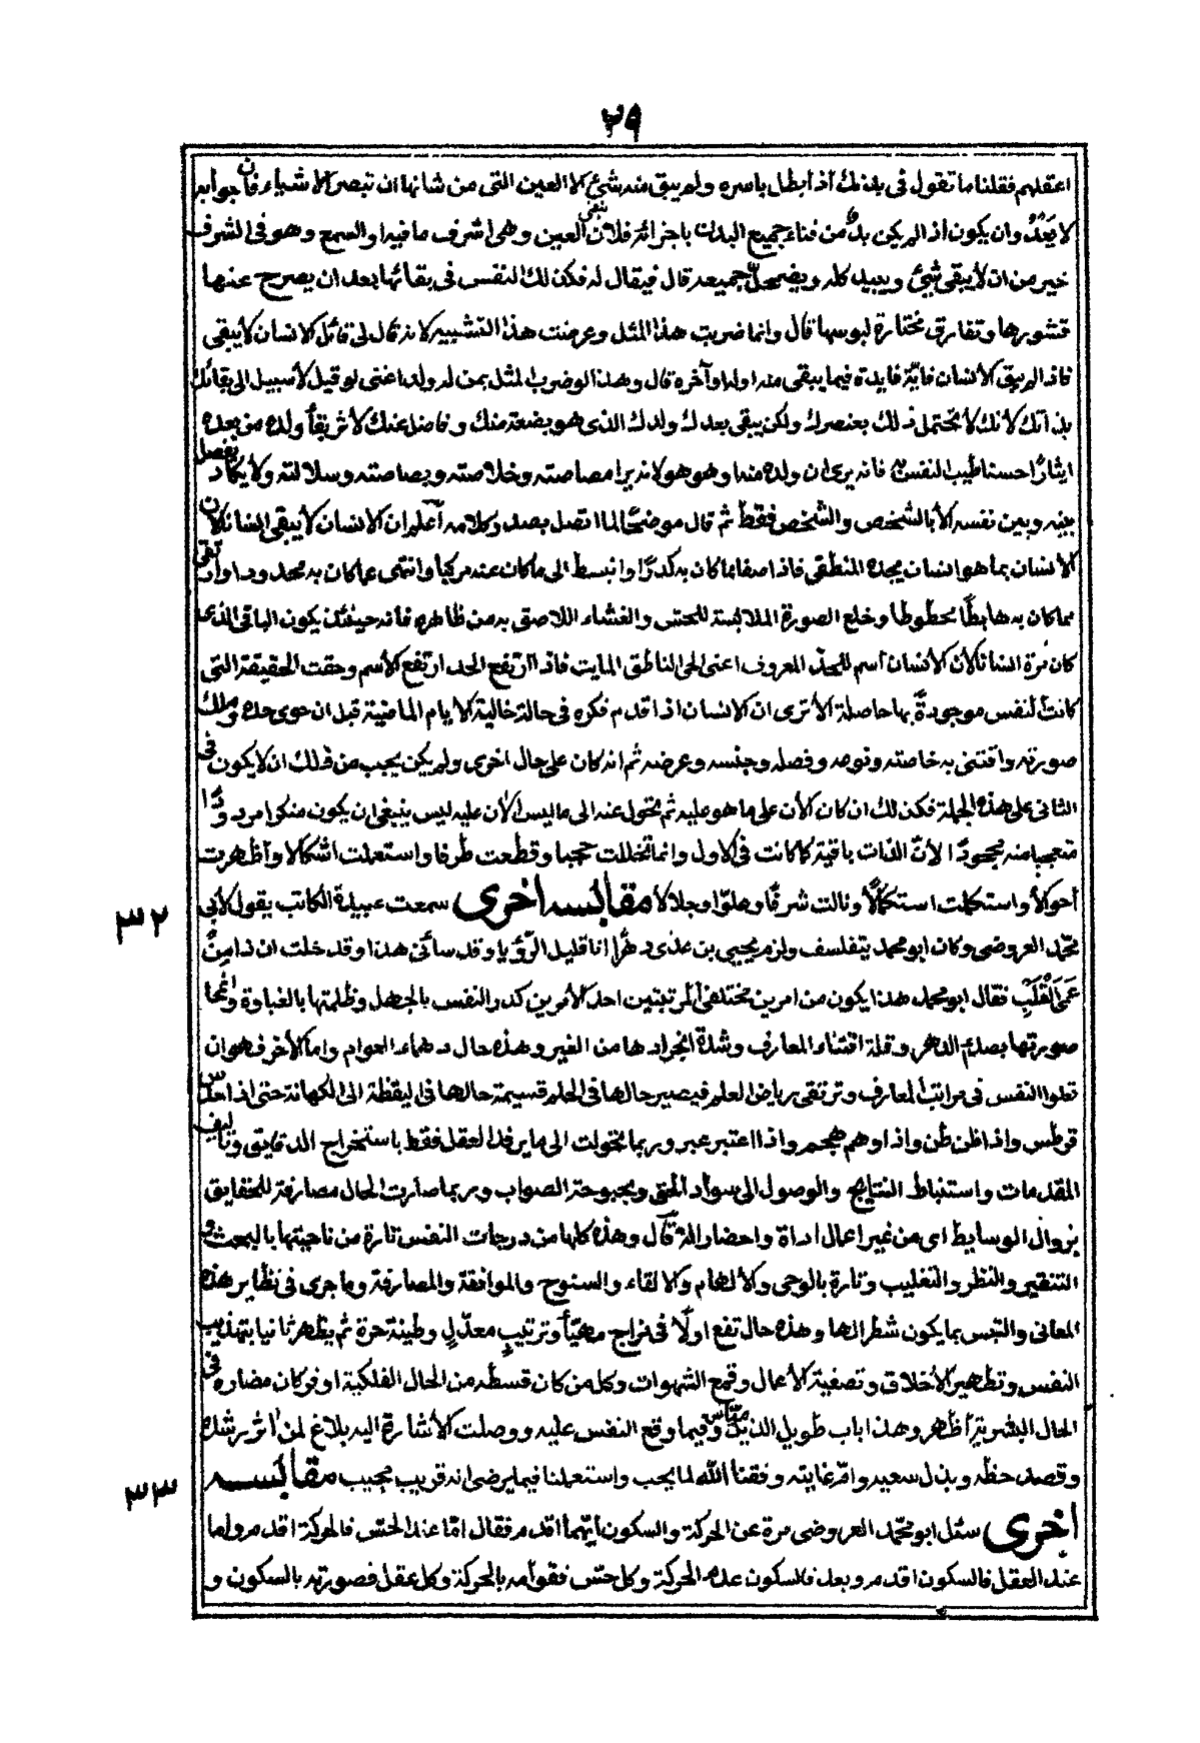 ٢٩
اعقلهم فقلنا ما تقول في بدنك اذا بطل باسره ولم يبق منه شئ الا العين التي من شانها ان تبصر الاشياء فان جوابه
لا يعدو ان يكون اذا لم يكن بد من فناء جميع البدن باجزائه فلان تبقى العين وهي اشرف ما فيه او السمع وهو في الشرف
خير من ان لا يبقى شئ ويبيد كله ويضمحل جميعه قال فيقال له فكذلك النفس في بقائها بعد ان يصرح عنها
قشورها وتفارق مختارة لبوسها قال وانما ضربت هذا المثل وعرضت هذا التشبيه لانه قال لي قائل الانسان لا يبقى
فاذا لم يبق الانسان فاية فايدة فيما يبقى منه اوله او آخره قال وهذا لو ضرب المثل بمن له ولد اعني لو قيل لا سبيل الى بقائك
بذاتك لانك لا تحتمل ذلك بعنصرك ولكن يبقى بعدك ولدك الذي هو بضعة منك وفاضل عنك لآثر بقاء ولده من بعده
ايثارا حسنا طيب النفس به فانه يرى ان ولده منه وهو هو لانه يراه مصاصته وخلاصته وسلالته ولا يكاد يفصل
بينه وبين نفسه الا بالشخص والشخص فقط ثم قال موضحا لما اتصل بصدر كلامه اعلم ان الانسان لا يبقى انسانا لان
الانسان بما هو انسان يحده المنطقي فاذا صفا مما كان به كدرا وانبسط الى ما كان عنه مركبا وانتهى عما كان به محدودا وارتقى
مما كان به هابطا محطوطا وخلع الصورة الملابسة للحس والغشاء اللاصق به من ظاهره فانه حينئذ يكون الباقي الذي
كان مرة انسانا لان الانسان اسم للحد المعروف اعني الحي الناطق المايت فاذا ارتفع الحد ارتفع الاسم وحقت الحقيقة التي
كانت لنفس موجودة بها حاصلة الا ترى ان الانسان اذا قدم فكره في حالة خالية الايام الماضية قبل ان حوى حده وملك
صورته واقتنى به خاصته ونوعه وفصله وجنسه وعرضه ثم انه كان على حال اخرى ولم يكن يجب من ذلك ان لا يكون في
الثاني على هذه الجملة فكذلك ان كان الآن على ما هو عليه ثم تحول عنه الى ما ليس الآن عليه ليس ينبغي ان يكون منكرا مردودا
متعجبا منه مجحودا لان الذات باقية كما كانت في الاول وانما تخللت حجبا وقطعت طرقا واستعملت اشكالا واظهرت
احوالا واستكملت استكمالا ونالت شرفا وعلوا وجلالا مقابسه اخرى سمعت عبيدة الكاتب يقول لابي
محمد العروضي وكان ابو محمد يتفلسف ولزم يحيى بن عدي دهرا انا قليل الرؤيا وقد سائني هذا وقد خلت ان ذا من
عمى القلب فقال ابو محمد هذا يكون من امرين مختلفي المرتبتين احد الامرين كدر النفس بالجهل وظلمتها بالغباوة وانمحا
صورتها بصدء الدهر وقلة اقتناء المعارف وشدة انجرادها من الغير وهذه حال دهماء العوام واما الآخر فهو ان
تعلوا النفس في مراتب المعارف وترتقى برياض العلم فيصير حالها في الحلم قسيمة حالها في اليقظة الى الكهانة حتى اذا حدس
قرطس واذا ظن طن واذا وهم هجم واذا اعتبر عبر وربما تحولت الى ما يرفد العقل فقط باستخراج الدقايق وتاليف
المقدمات واستنباط النتايج والوصول الى سواد الحق وبحبوحة الصواب وربما صارت الحال مصارفة للحقايق
بزوال الوسايط اي من غير اعمال اداة واحضار الة قال وهذه كلها من درجات النفس تارة من ناحيتها بالبحث و
التنقير والنظر والتغليب وتارة بالوحي والالهام والالقاء والسنوح والموافقة والمصارفة وما جرى في نظاير هذه
المعاني والتبس بما يكون شطرا لها وهذه حال تقع اولا في مزاج مهيأ وترتيب معدل وطينة حرة ثم يظهر ثانيا بتهذيب
النفس وتطهير الاخلاق وتصفية الاعمال وقمع الشهوات وكل من كان قسطه من الحال الفلكية اوفر كان مضاره في
الحال البشرية اظهر وهذا باب طويل الذيل وفيما وقع النفس عليه ووصلت الاشارة اليه بلاغ لمن آثر رشده
وقصد حظه وبذل سعيه وام غايته وفقنا الله لما يجب واستعملنا فيما يرضى انه قريب مجيب مقابسه
اخرى سئل ابو محمد العروضي مرة عن الحركة والسكون ايهما اقدم فقال اما عند الحس فالحركة اقدم واما
عند العقل فالسكون اقدم وبعد فالسكون عدم الحركة وكل حس فقوامه بالحركة وكل عقل فصورته بالسكون و
٣٢
٣٣